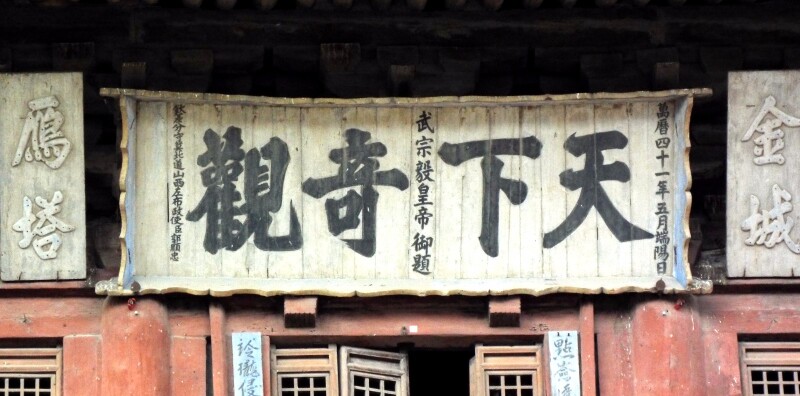 金城
萬曆四十一年五月端陽日
天下奇觀
武宗毅皇帝御題
欽差分守冀北道山西左布政使臣郭顯忠
雁塔
玲瓏侵
點崙